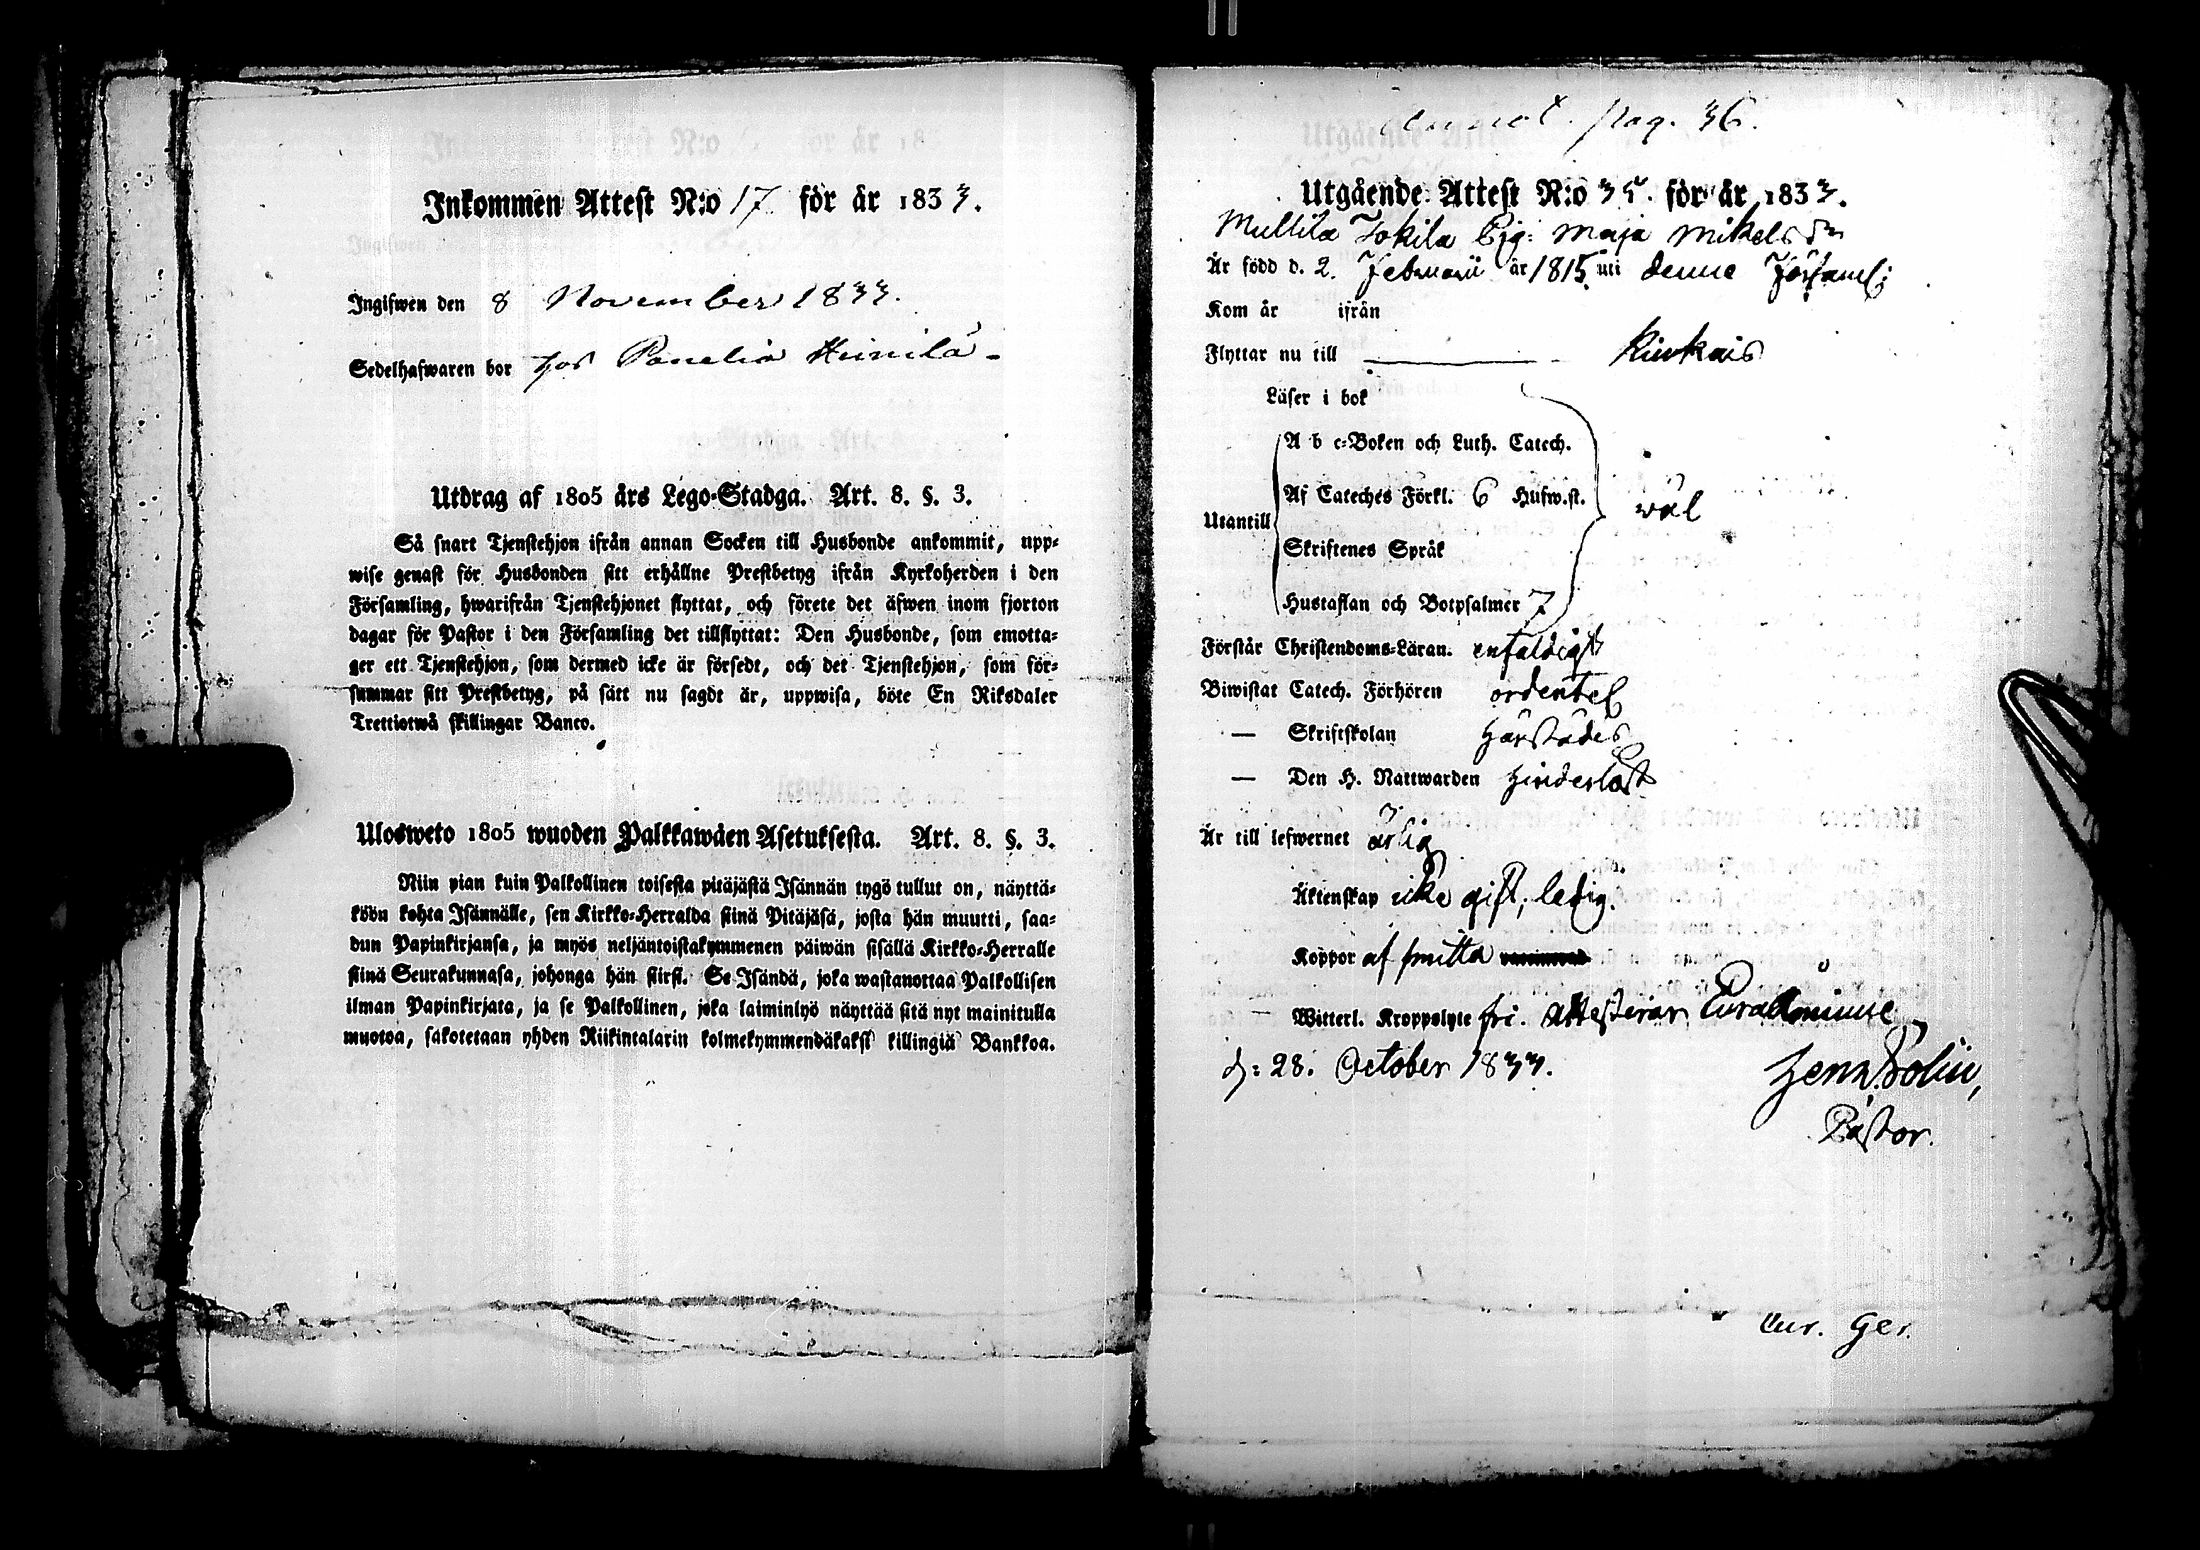 Inkommen Attest N:o 17 för år 1833.
Ingifwen den 8 November 1833.
Sedelhafwaren bor hos Panelia Heinilä
Utdrag af 1805 års Lego-Stadga. Art. 8. §. 3.
Så snart Tjenstehjon ifrån annan Socken till Husbonde ankommit, upp-
wise genast för Husbonden sitt erhållne Prestbetyg ifrån Kyrkoherden i den
Församling, hwarifrån Tjenstehjonet flyttat, och förete det äfwen inom fjorton
dagar för Pastor i den Församling det tillflyttat: Den Husbonde, som emotta-
ger ett Tjenstehjon, som dermed icke är försedt, och det Tjenstehjon, som för-
summar sitt Prestbetyg, på sätt nu sagdt är, uppwisa, böte En Riksdaler
Trettiotwå skillingar Banco.
Ulosweto 1805 wuoden Palkkawäen Asetuksesta. Art. 8. §. 3.
Niin pian kuin Palkollinen toisesta pitäjästä Isännän tygö tullut on, näyttä-
köön kohta Isännälle, sen Kirkko-Herralda siinä Pitäjäsä, josta hän muutti, saa-
dun Papinkirjansa, ja myös neljäntoistakymmenen päiwän sisällä Kirkko-Herralle
siinä Seurakunnasa, johonga hän siirsi. Se Isändä, joka wastanottaa Palkollisen
ilman Papinkirjata, ja se Palkollinen, joka laiminlyö näyttää sitä nyt mainitulla
muotoa, sakotetaan yhden Riikintalarin kolmekymmendäkaksi killingiä Bankkoa.
pag. 36.
Utgående Attest N:o 35. för år 1833.
Mullila Jokila Pig: Maja Mikelsdr
Är född d. 2. Februarii år 1815 uti denne Församl:
Kom år ifrån
Flyttar nu till Kiukais
Läser i bok
A b c-Boken och Luth. Catech.
Af Cateches Förkl. 6 Hufw.st. wäl
Utantill
Skriftenes Språk
Hustaflan och Botpsalmer 7
Förstår Christendoms-Läran. enfaldigt
Biwistat Catech. Förhören ordentel
— Skriftskolan härstädes
— Den H. Nattwarden hinderlöst
Är till lefwernet ärlig
Äktenskap icke gift, ledig.
Koppor af smitta
Witterl. Kroppslyte fri. attesterar Eura
d: 28. October 1833.
Pastor.